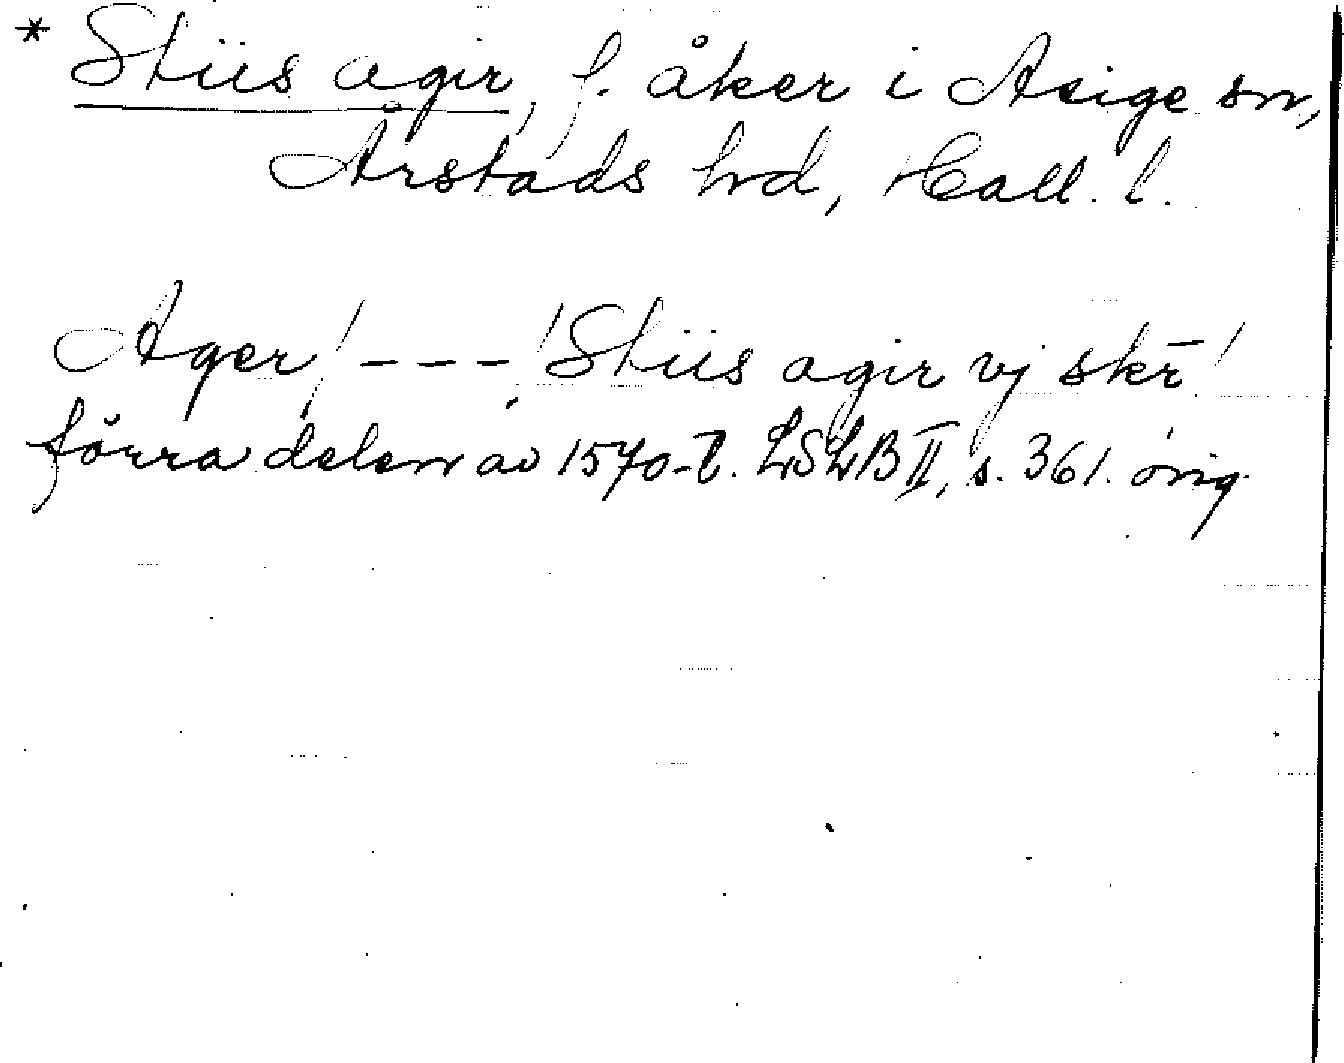 * Stiis agir, f. åker i Asige sn,
Årstads hd, Hall. l.
Ager / - - - / Stiis agir vj skr̄ /
förra delen av 1570-t. LSLB II, s. 361. orig.